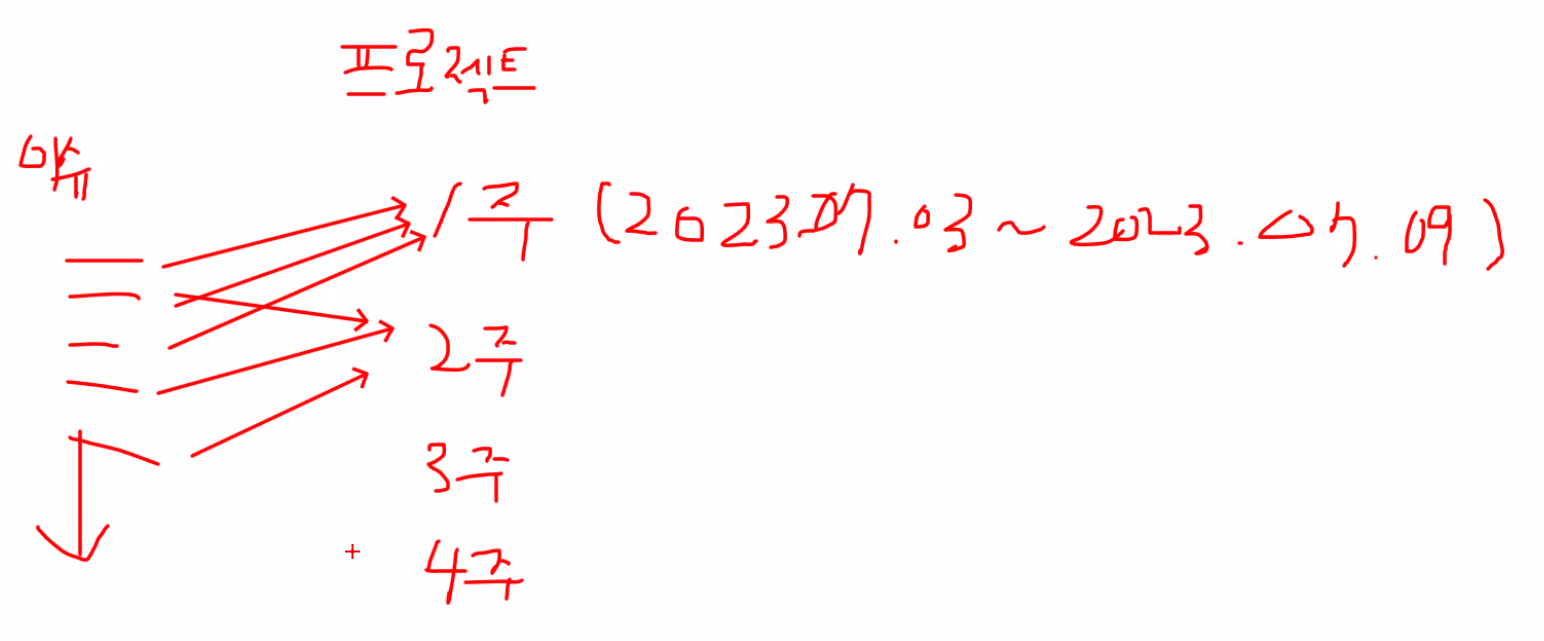 프로젝트
이슈
1주 (2023.07.03 ~ 2023.07.09)
2주
3주
4주